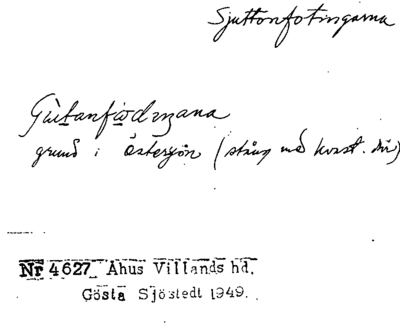 Sjuttonfotingarna
grund i östersjön (stång med kvast. där)
Nr 4627 Åhus Villands hd.
Gösta Sjöstedt 1949.